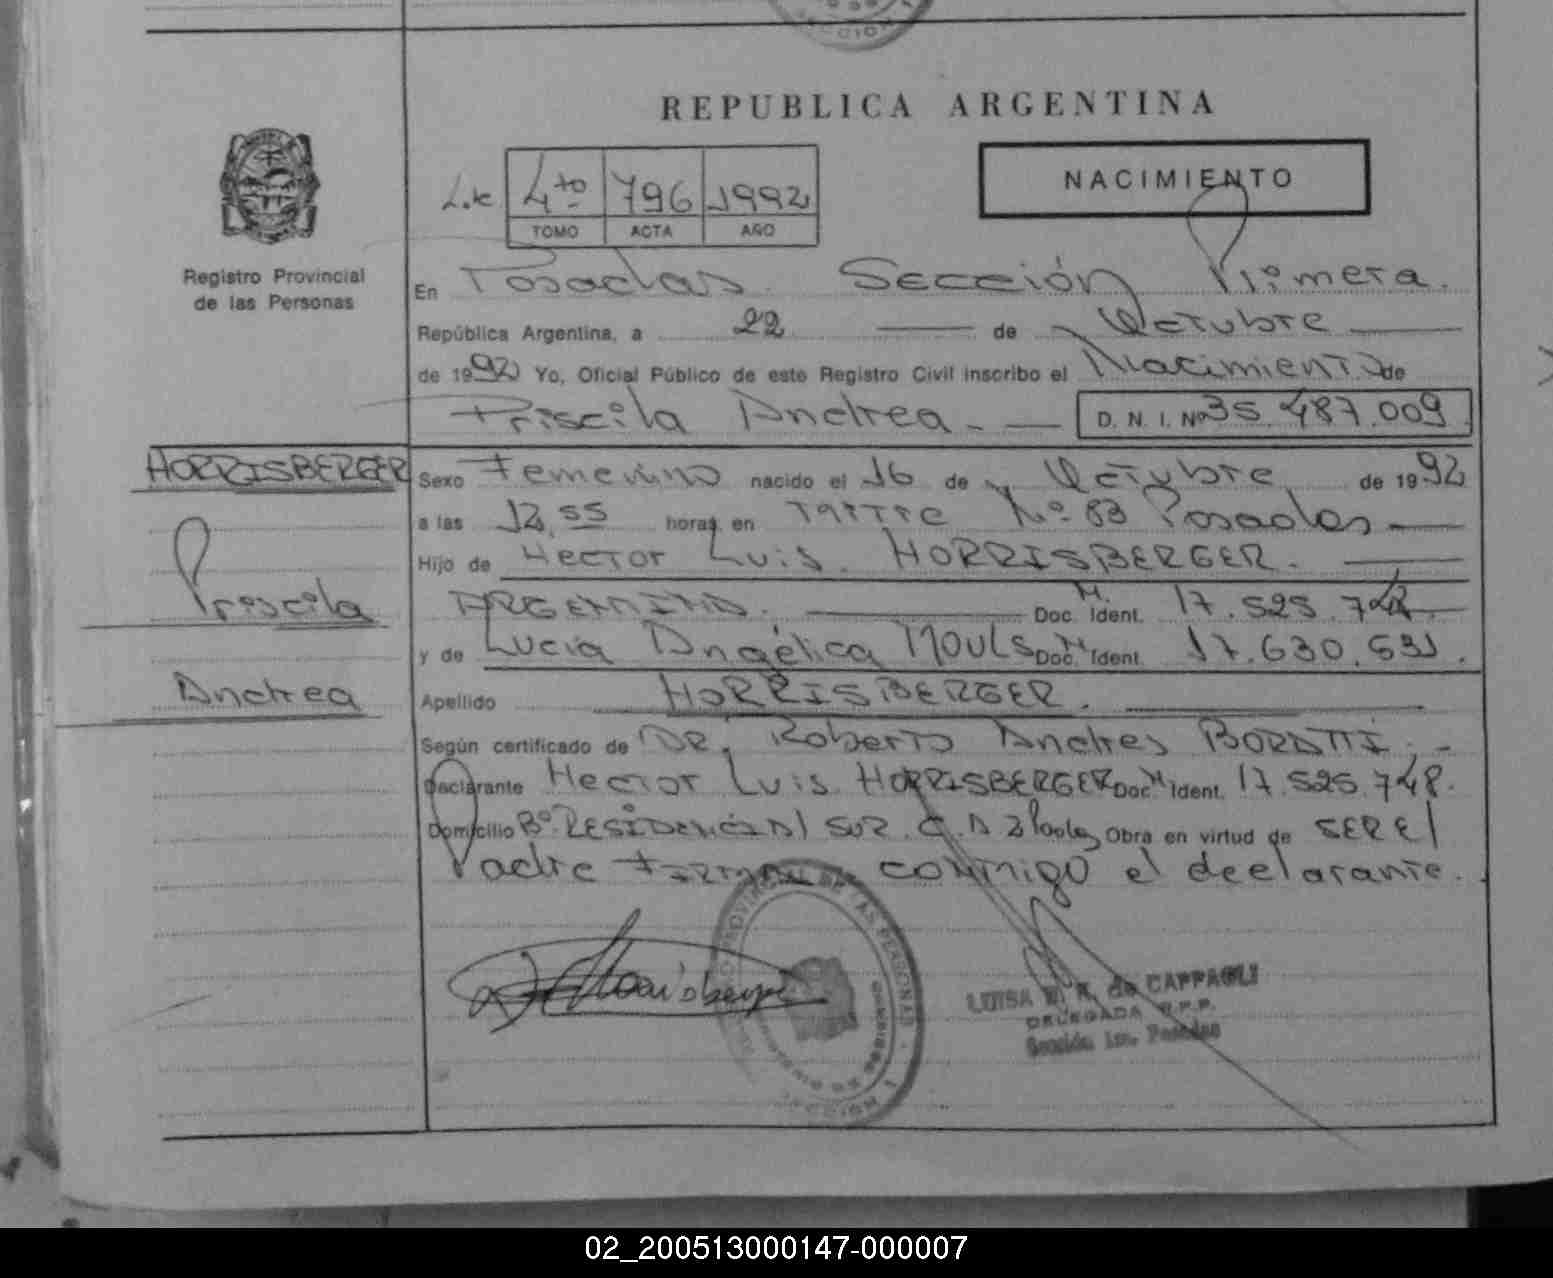 REPUBLICA ARGENTINA
NACIMIENTO
4to 796 1992
TOMO ACTA AÑO
Registro Provincial
de las Personas
En Posadas. Sección Primera.
República Argentina, a 22 de Octubre
de 1992 Yo, Oficial Público de este Registro Civil inscribo el Nacimiento de
Priscila Andrea D. N. I. Nº 35.487.009
HORRISBERGER
Priscila
Andrea
Sexo Femenino nacido el 16 de Octubre de 1992
a las 12,55 horas en Nº 83 Posadas
Hijo de Hector Luis HORRISBERGER.
ARGENTINO. Doc. M. Ident. 17.525.748.
y de Lucia Angélica MOULS Doc. M. Ident. 17.630.631.
Apellido HORRISBERGER.
Según certificado de DR. Roberto Andres
Declarante Hector Luis HORRISBERGER Doc. M. Ident. 17.525.748.
Domicilio Bº. RESIDENCIAL SUR. Obra en virtud de SER El
Padre Firman conmigo el declarante.
LUISA de CAPPAGLI
DELEGADA R.P.P.
Sección 1ra. Posadas
02_200513000147-000007